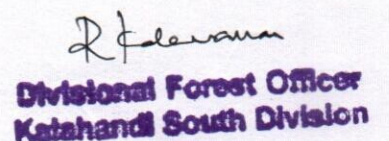 Divisional Forest Officer
Kalahandi South Division